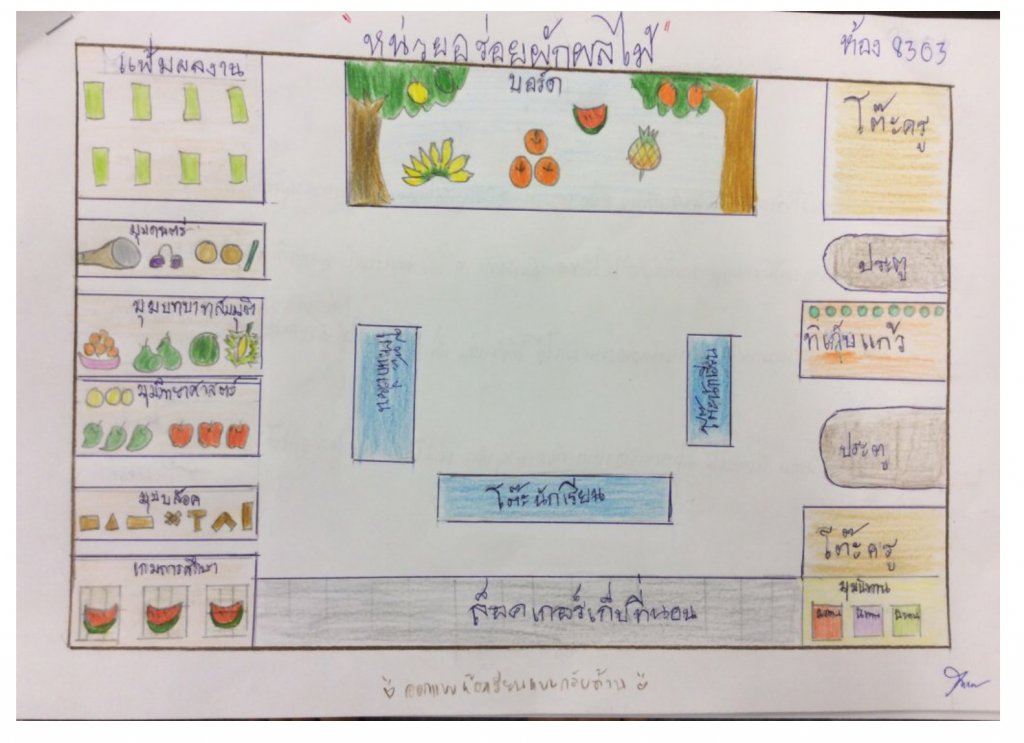 "หน่วยอร่อยผักผลไม้"
ห้อง 8303
แฟ้มผลงาน
บอร์ด
โต๊ะครู
มุมดนตรี
ประตู
มุมบทบาทสมมุติ
ที่เก็บแก้ว
โต๊ะนักเรียน
โต๊ะนักเรียน
มุมวิทยาศาสตร์
ประตู
โต๊ะนักเรียน
มุมบล็อค
โต๊ะครู
เกมการศึกษา
มุมนิทาน
นิทาน นิทาน นิทาน
ล็อคเกอร์เก็บที่นอน
ออกแบบห้องเรียนแบบกลับด้าน